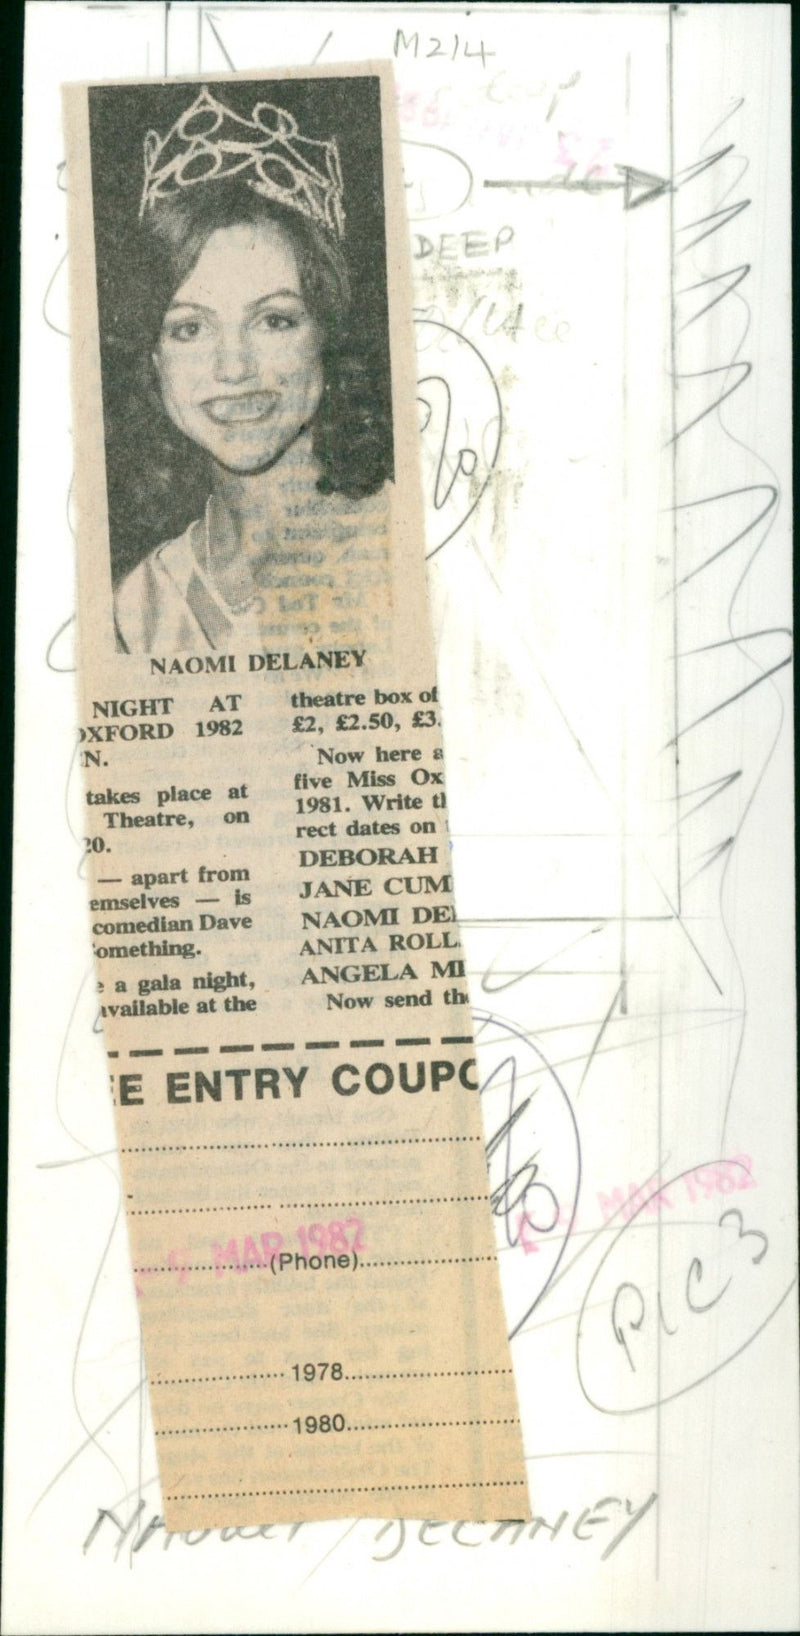 M214
DEEP
NAOMI DELANEY
NIGHT AT
OXFORD 1982
N.
takes place at
Theatre, on
20.
— apart from
emselves — is
comedian Dave
omething.
e a gala night,
available at the
theatre box of
£2, £2.50, £3.
Now here a
five Miss Ox
1981. Write th
rect dates on
DEBORAH
JANE CUM
NAOMI DEL
ANITA ROLL
ANGELA MI
Now send the
EE ENTRY COUPO
MAR 1982
MAR 1982
(Phone)
PIC 3
1978
1980
NAOMI DELANEY